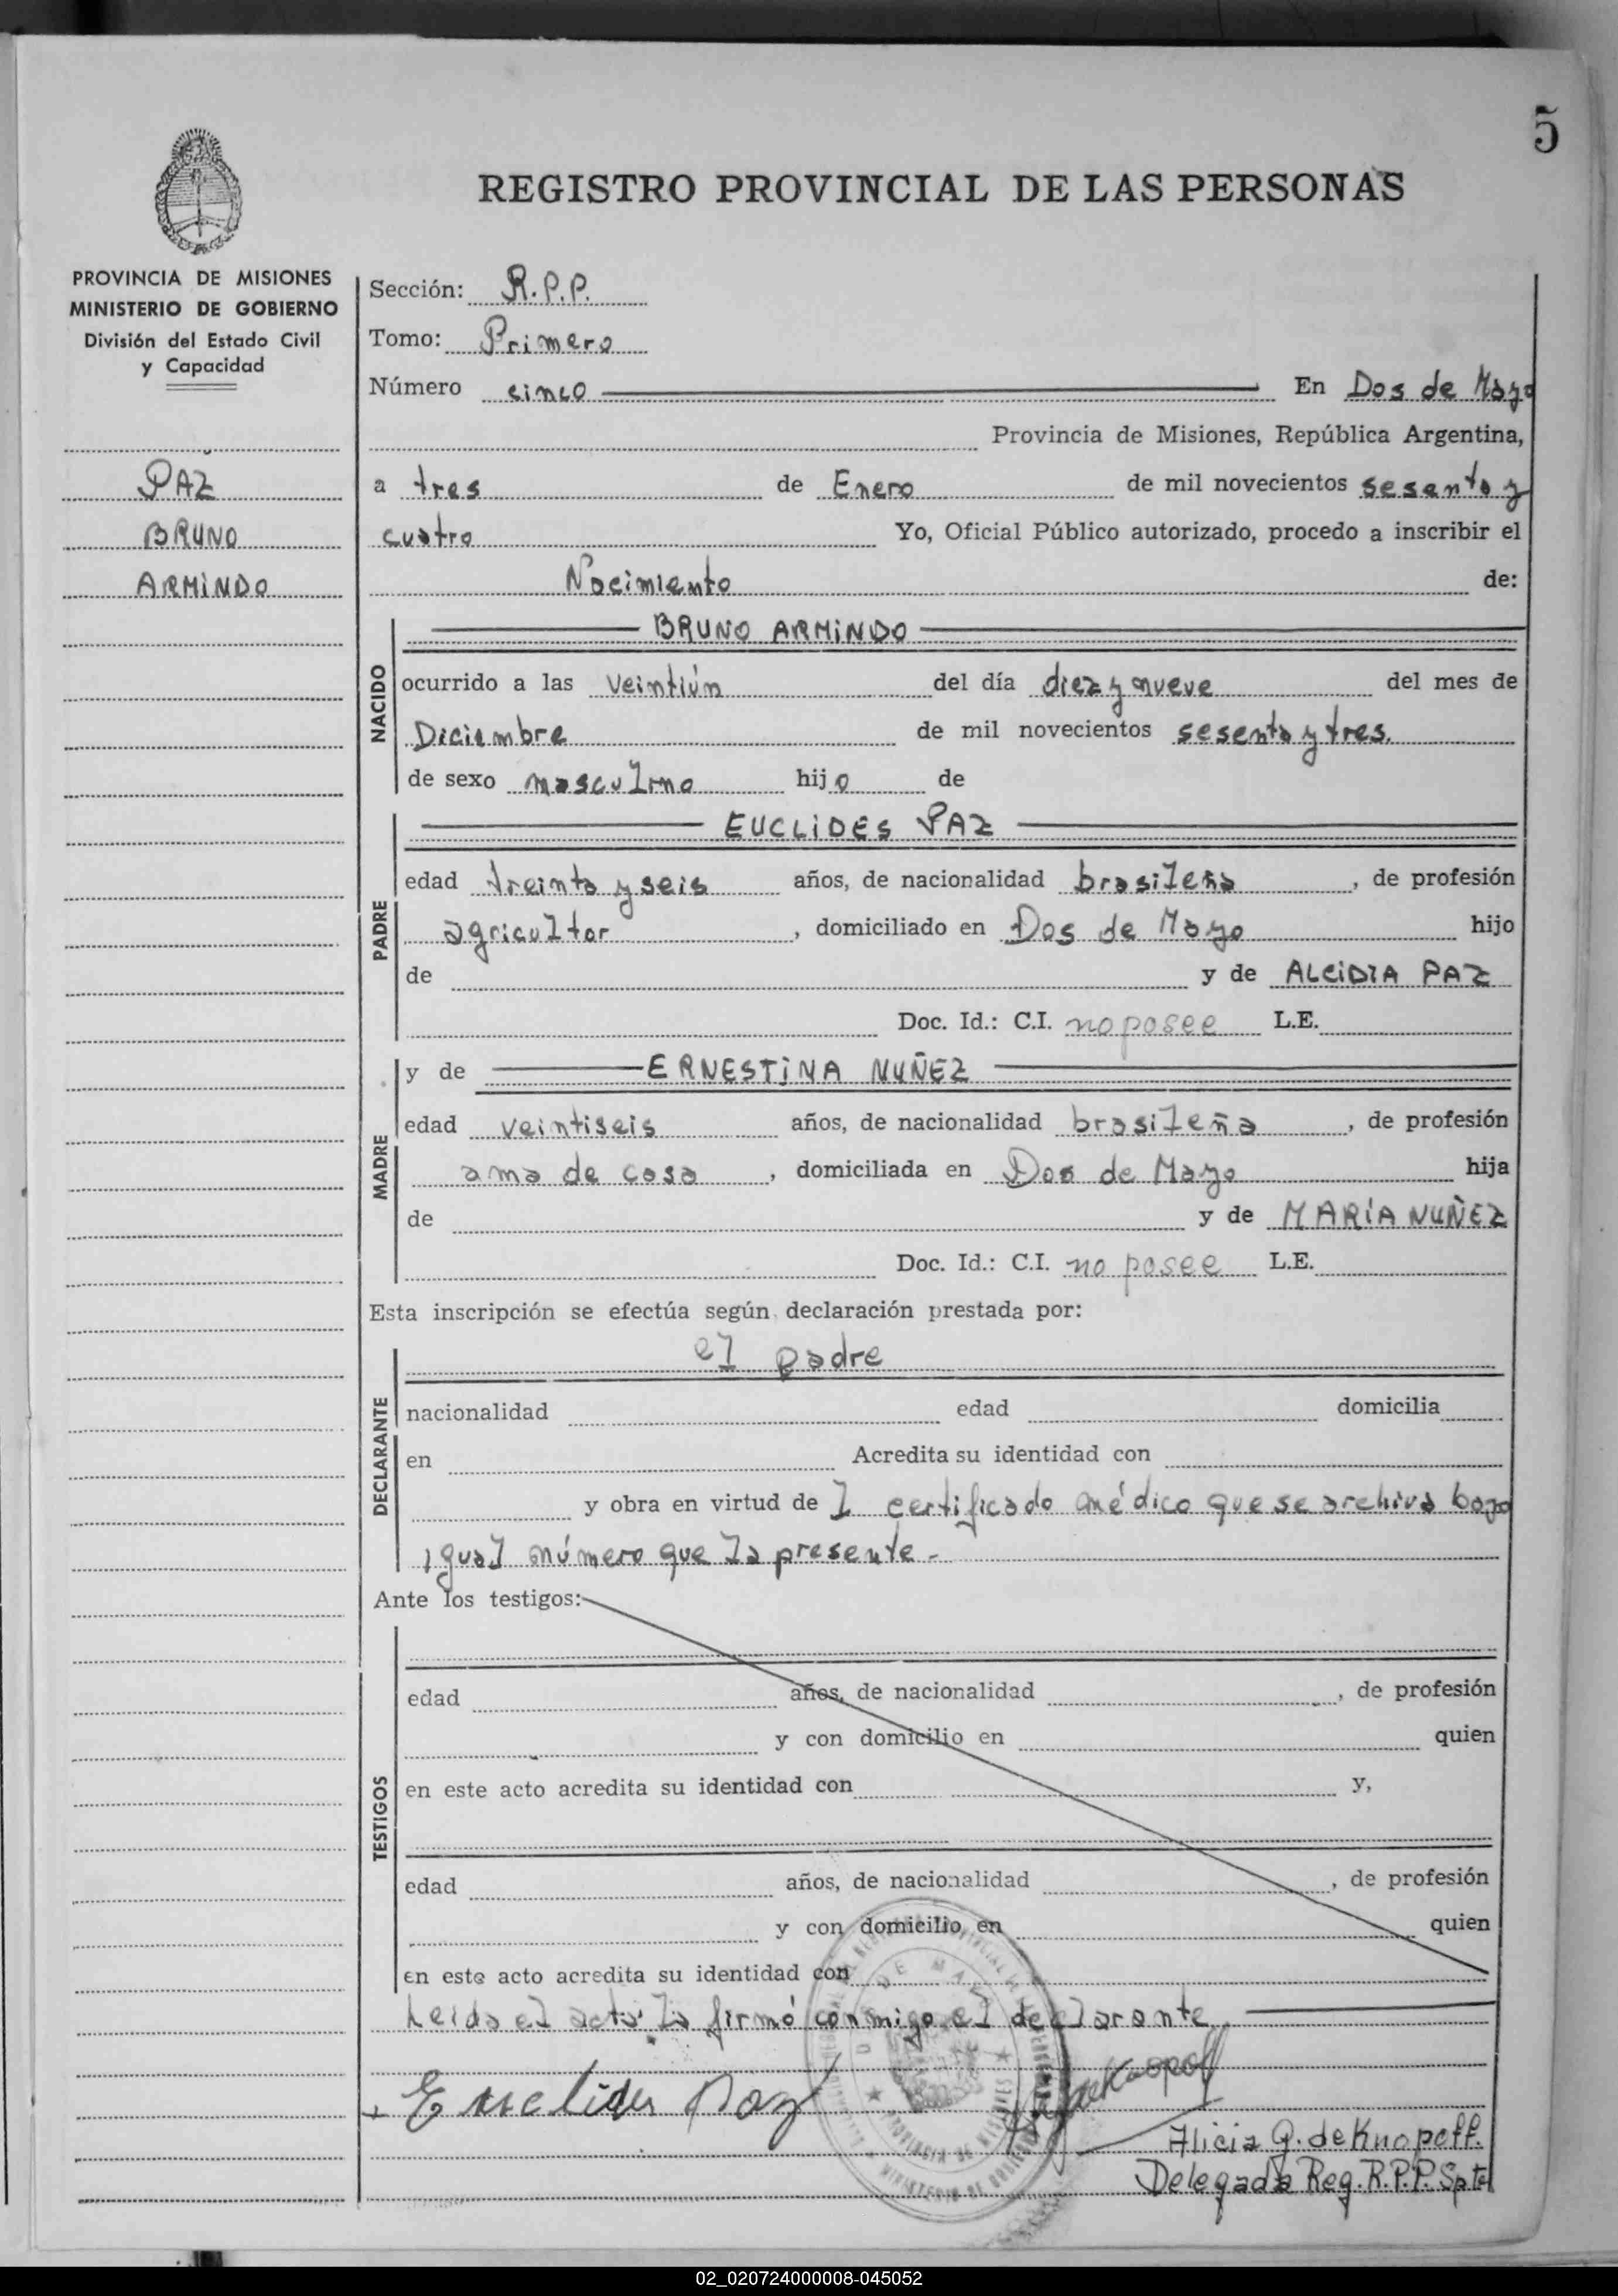 5
REGISTRO PROVINCIAL DE LAS PERSONAS
PROVINCIA DE MISIONES
MINISTERIO DE GOBIERNO
División del Estado Civil
y Capacidad
PAZ
BRUNO
ARMINDO
Sección: R.P.P.
Tomo: Primero
Número cinco En Dos de Mayo
Provincia de Misiones, República Argentina,
a tres de Enero de mil novecientos sesenta y
cuatro Yo, Oficial Público autorizado, procedo a inscribir el
Nacimiento de:
NACIDO
BRUNO ARMINDO
ocurrido a las veintiún del día diez y nueve del mes de
Diciembre de mil novecientos sesenta y tres.
de sexo masculino hijo de
PADRE
EUCLIDES PAZ
edad treinta y seis años, de nacionalidad brasileña, de profesión
agricultor, domiciliado en Dos de Mayo hijo
de y de ALCIDIA PAZ
Doc. Id.: C.I. no posee L.E.
MADRE
y de ERNESTINA NUÑEZ
edad veintiseis años, de nacionalidad brasileña, de profesión
ama de casa, domiciliada en Dos de Mayo hija
de y de MARÍA NUÑEZ
Doc. Id.: C.I. no posee L.E.
Esta inscripción se efectúa según declaración prestada por:
DECLARANTE
el padre
nacionalidad edad domicilia
en Acredita su identidad con
y obra en virtud de l certificado médico que se archiva bajo
igual número que la presente.-
Ante los testigos:
TESTIGOS
edad años, de nacionalidad, de profesión
y con domicilio en quien
en este acto acredita su identidad con y,
edad años, de nacionalidad, de profesión
y con domicilio en quien
en este acto acredita su identidad con
Leída el acta la firmó conmigo el declarante.
Euclides Paz
Alicia G. de Knopoff.
Delegada Reg. R.P.P. Spte
DOS DE MAYO
02_020724000008-045052